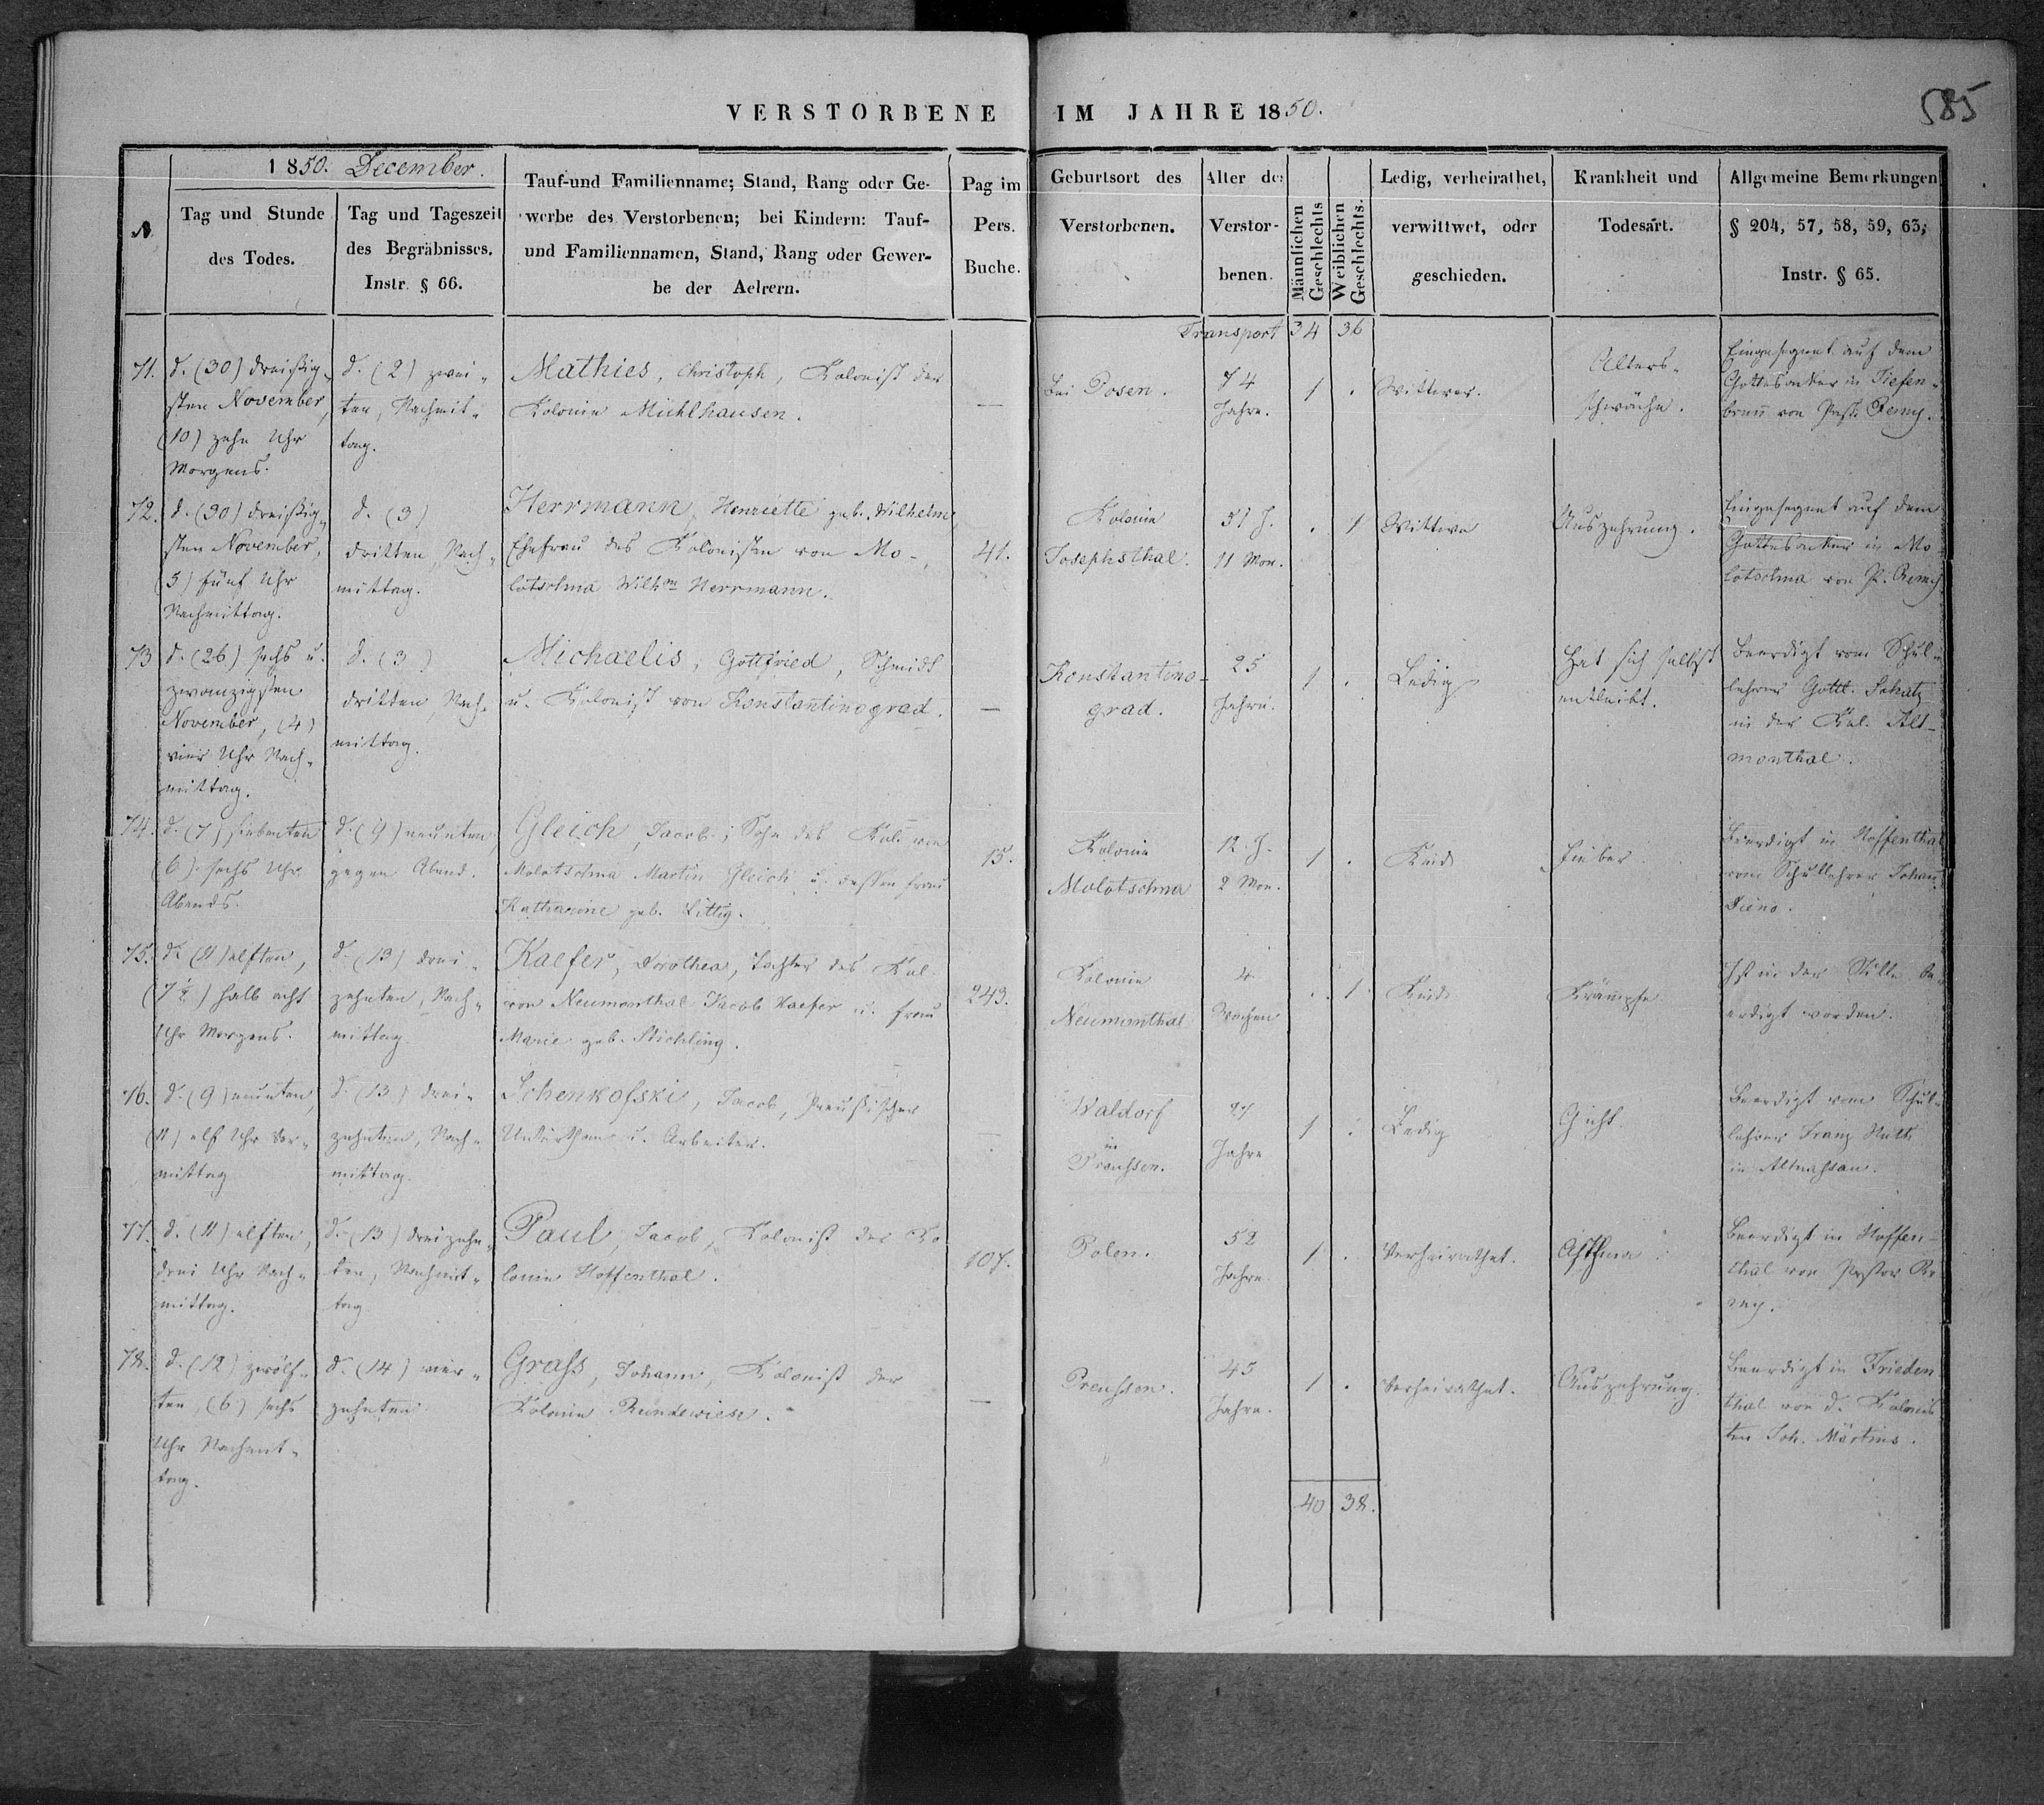 VERSTORBENE IM JAHRE 1850.
585
1850. December.
№
Tag und Stunde
des Todes.
Tag und Tageszeit
des Begräbnisses.
Instr. § 66.
Tauf-und Familienname; Stand, Rang oder Ge-
werbe des Verstorbenen; bei Kindern: Tauf-
und Familiennamen, Stand, Rang oder Gewer-
be der Aelrern.
Pag im
Pers.
Buche.
Geburtsort des
Verstorbenen.
Alter des
Verstor-
benen.
Männlichen
Geschlechts
Weiblichen
Geschlechts.
Ledig, verheirathet,
verwittwet, oder
geschieden.
Krankheit und
Todesart.
Allgemeine Bemerkungen
§ 204, 57, 58, 59, 63;
Instr. § 65.
Transport 34 36
71.
d. (30) dreißig-
sten November,
(10) zehn Uhr
Morgens.
d. (2) zwei-
ten, Nachmit-
tag.
Mathies, Christoph, Kolonist der
Kolonie Michlhausen.
—
bei Posen.
74
Jahre.
1 .
Wittwer.
Alters-
schwäche.
Eingesegnet auf dem
Gottesacker in Tiefen-
brunn von Past. Remy.
72.
d. (30) dreißig-
sten November,
(5) fünf Uhr
Nachmittag.
d. (3)
dritten, Nach-
mittag.
Herrmann, Henriette geb. Wilhelm,
Ehefrau des Kolonisten von Mo-
lotschna Wilhm Herrmann.
41.
Kolonie
Josephsthal.
51 J.
11 Mon.
. 1
Wittwe
Auszehrung.
Eingesegnet auf dem
Gottesacker in Mo
lotschna von P. Remy
73
d. (26) sechs u.
zwanzigsten
November, (4)
vier Uhr Nach-
mittag.
d. (3)
dritten Nach-
mittag.
Michaelis, Gottfried, Schmidt
u. Kolonist von Konstantinograd.
—
Konstantino-
grad.
25
Jahre.
1 .
Ledig
Hat sich selbst
entleibt.
Beerdigt vom Schul-
lehrer Gottl. Schatz
in der Kol. Alt-
monthal.
74.
d. (7) siebenten
(6) sechs Uhr
Abends.
d. (9) neunten
gegen Abend.
Gleich, Jacob; Sohn des Kol. von
Molotschna Martin Gleich u. dessen Frau
Katharine geb. Littig.
15.
Kolonie
Molotschna
12 J.
2 Mon.
1 .
Kind
Fieber
Beerdigt in Hoffenthal
vom Schullehrer Johan
75.
d. (11) elften,
(7½) halb acht
Uhr Morgens.
d. (13) drei-
zehnten, Nach-
mittag.
Kaefer, Dorothea, Tochter des Kol.
von Neumonthal Jacob Kaefer u. Frau
Marie geb. Stichling.
243.
Kolonie
Neumonthal
4
Wochen
. 1.
Kind
Krämpfe
Ist in der Stille be-
erdigt worden.
76.
d. (9) neunten,
(11) elf Uhr Vor-
mittag
d. (13) drei-
zehnten, Nach-
mittag.
Schenkofski, Jacob, Preußischer
Unterthan u. Arbeiter.
Waldorf
in
Preussen.
27
Jahre
1 .
Ledig
Gicht.
Beerdigt vom Schul-
lehrer Franz
in Altnassau.
77.
d. (11) elften,
drei Uhr Nach-
mittag.
d. (13) dreizehn-
ten, Nachmit-
tag
Paul, Jacob, Kolonist der Ko
lonie Hoffenthal.
107.
Polen.
52
Jahre.
1 .
Verheirathet.
Asthma
Beerdigt in Hoffen-
thal von Pastor Re
my.
78.
d. (12) zwölf-
ten, (6) sechs
Uhr Nachmit-
tag.
d. (14) vier-
zehnten
Grass, Johann, Kolonist der
Kolonie Rundewiese.
—
Preussen.
45
Jahre.
1 .
Verheirathet.
Auszehrung.
Beerdigt in Frieden
thal von d. Kolonis
ten Joh. Martins.
40 38.